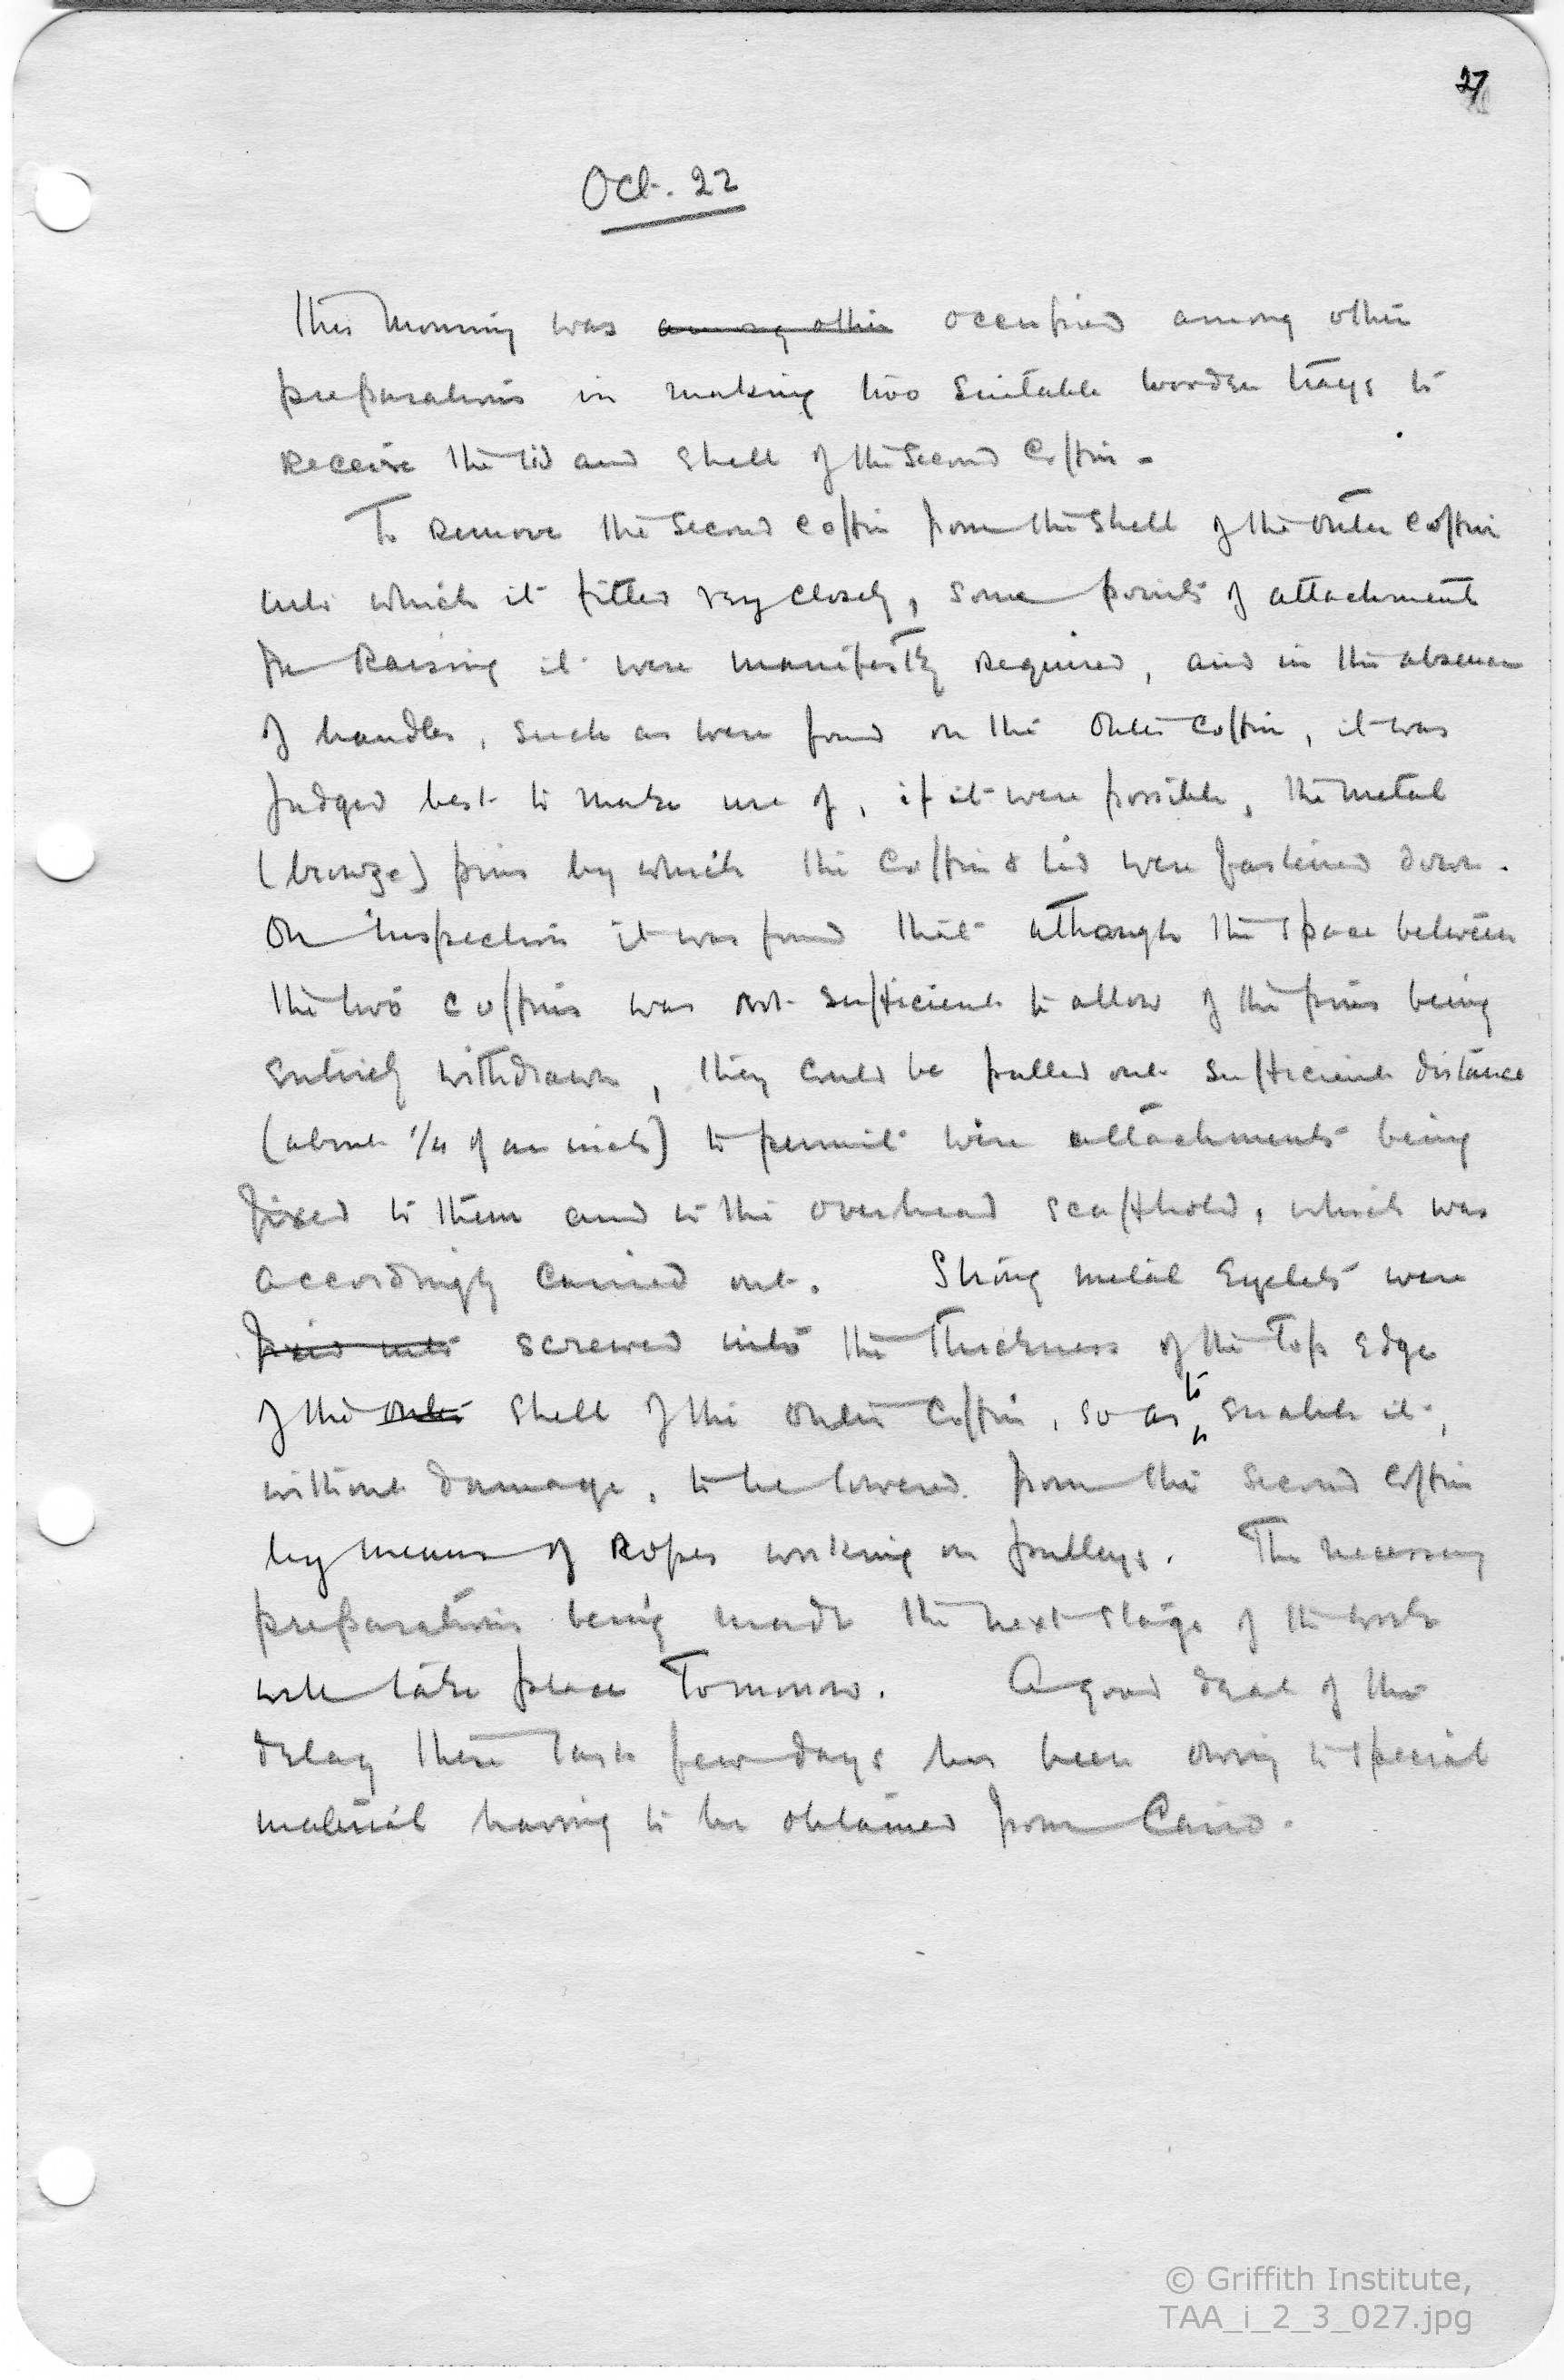 27
Oct. 22
This morning was among other occupied among other
preparations in making two suitable wooden trays to
receive the lid and shell of the second coffin.
To remove the second coffin from the shell of the outer coffin
into which it fitted very closely, some points of attachment
for raising it were manifestly required, and in the absence
of handles, such as were found on the outer coffin, it was
judged best to make use of, if it were possible, the metal
(bronze) pins by which the coffin & lid were fastened down.
On inspection it was found that although the space between
the two coffins was not sufficient to allow of the pins being
entirely withdrawn, they could be pulled out sufficient distance
(about 1/4 of an inch) to permit wire attachments being
fixed to them and to the overhead scaffhold, which was
accordingly carried out. Strong metal eyelets were
fixed into screwed into the thickness of the top edge
of the outer shell of the outer coffin, so as to enable it,
without damage, to be lowered from the second coffin
by means of ropes working on pulleys. The necessary
preparations being made the next stage of the work
will take place tomorrow. A good deal of the
delay these last few days has been owing to special
material having to be obtained from Cairo.
© Griffith Institute,
TAA_i_2_3_027.jpg